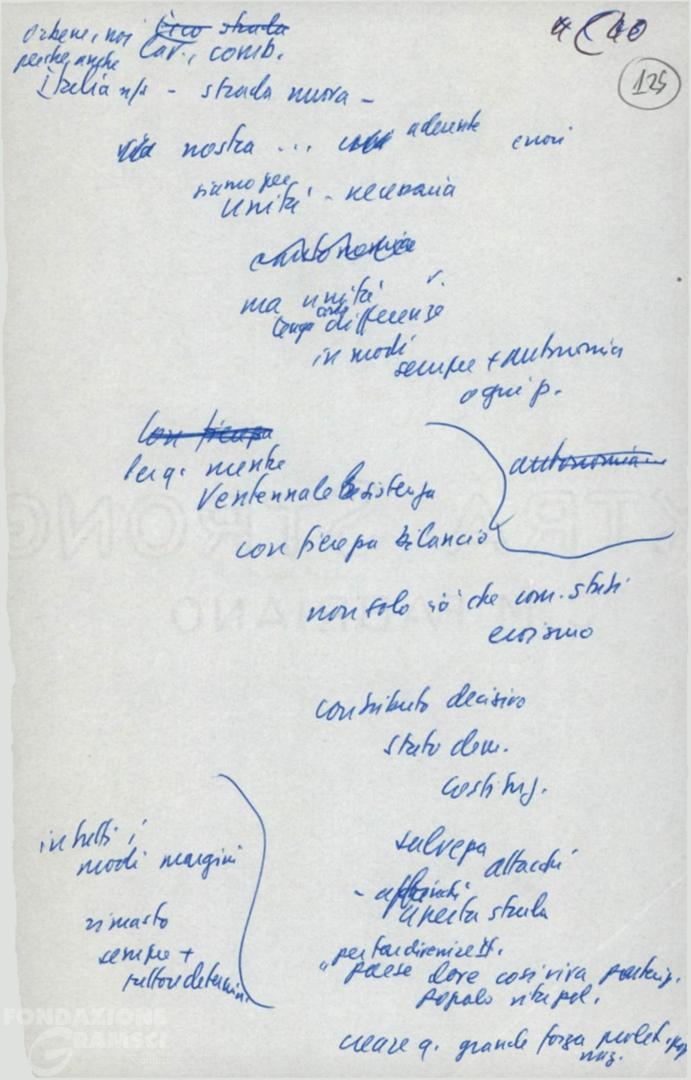 4 (40
125
orbene, noi ~~dico strada~~
perché anche lav., comb.
Italia n/s - strada nuova -
via nostra ... aderente
siamo per
unità - necessaria
~~autonomia~~
ma unità v.
tenga conto differenze
in modi
sempre + autonomia
ogni p.
~~con fierezza~~
Perq. mentre
Ventennale Resistenza
~~autonomia~~
con fierezza bilancio
non solo ciò che com. stati
eroismo
contributo decisivo
stato dem.
costituz.
in tutti i
modi margini
rimasto
sempre +
fattore determin.
salvezza
attacchi
aperta strada
per far divenire It.
"paese dove così viva partecip.
popolo vita pol.
creare q. grande forza prolet. pop
naz.
FONDAZIONE
GRAMSCI